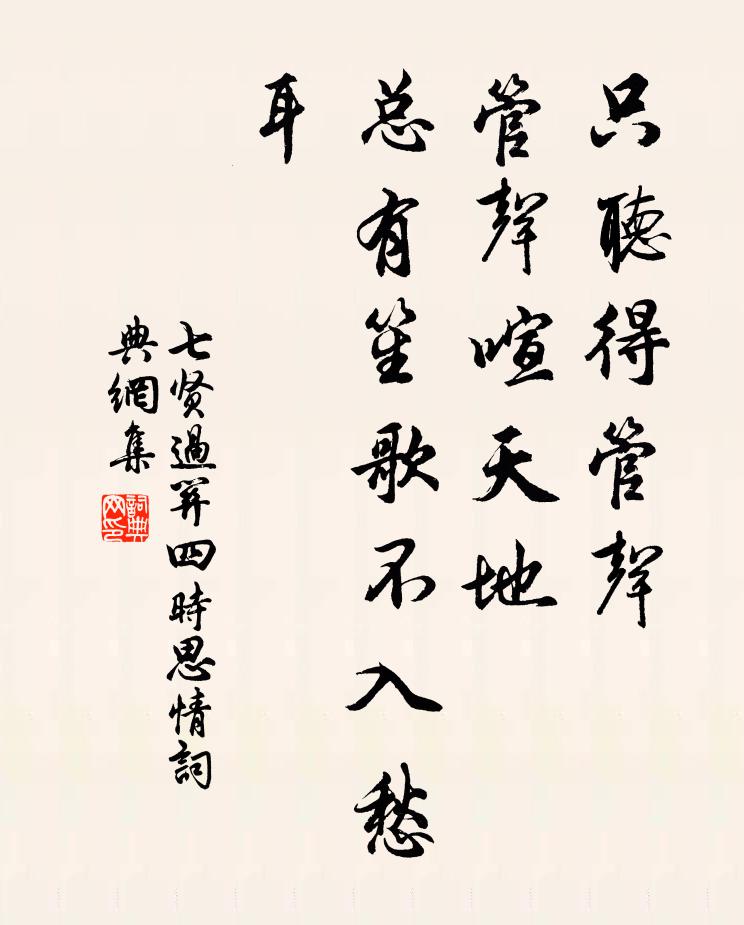 只聽得管聲
管聲喧天地
总有笙歌不入愁
耳
七贤過关四時思情詞
典網集
詞典
网印